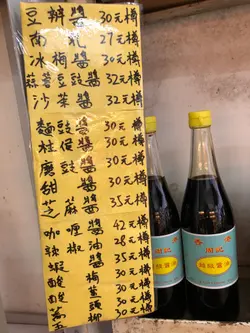 豆瓣醬 30元樽
南乳 27元樽
冰梅醬 30元樽
蒜蓉豆豉醬 32元樽
沙茶醬 32元樽
麵豉醬 30元樽
柱侯醬 30元樽
磨豉醬 30元樽
甜醬 30元樽
芝麻醬 35元樽
咖喱醬 42元樽
辣椒油 28元樽
蝦醬 35元樽
酸梅 30元樽
酸蕎 30元樽
30元樽
香港
醬油